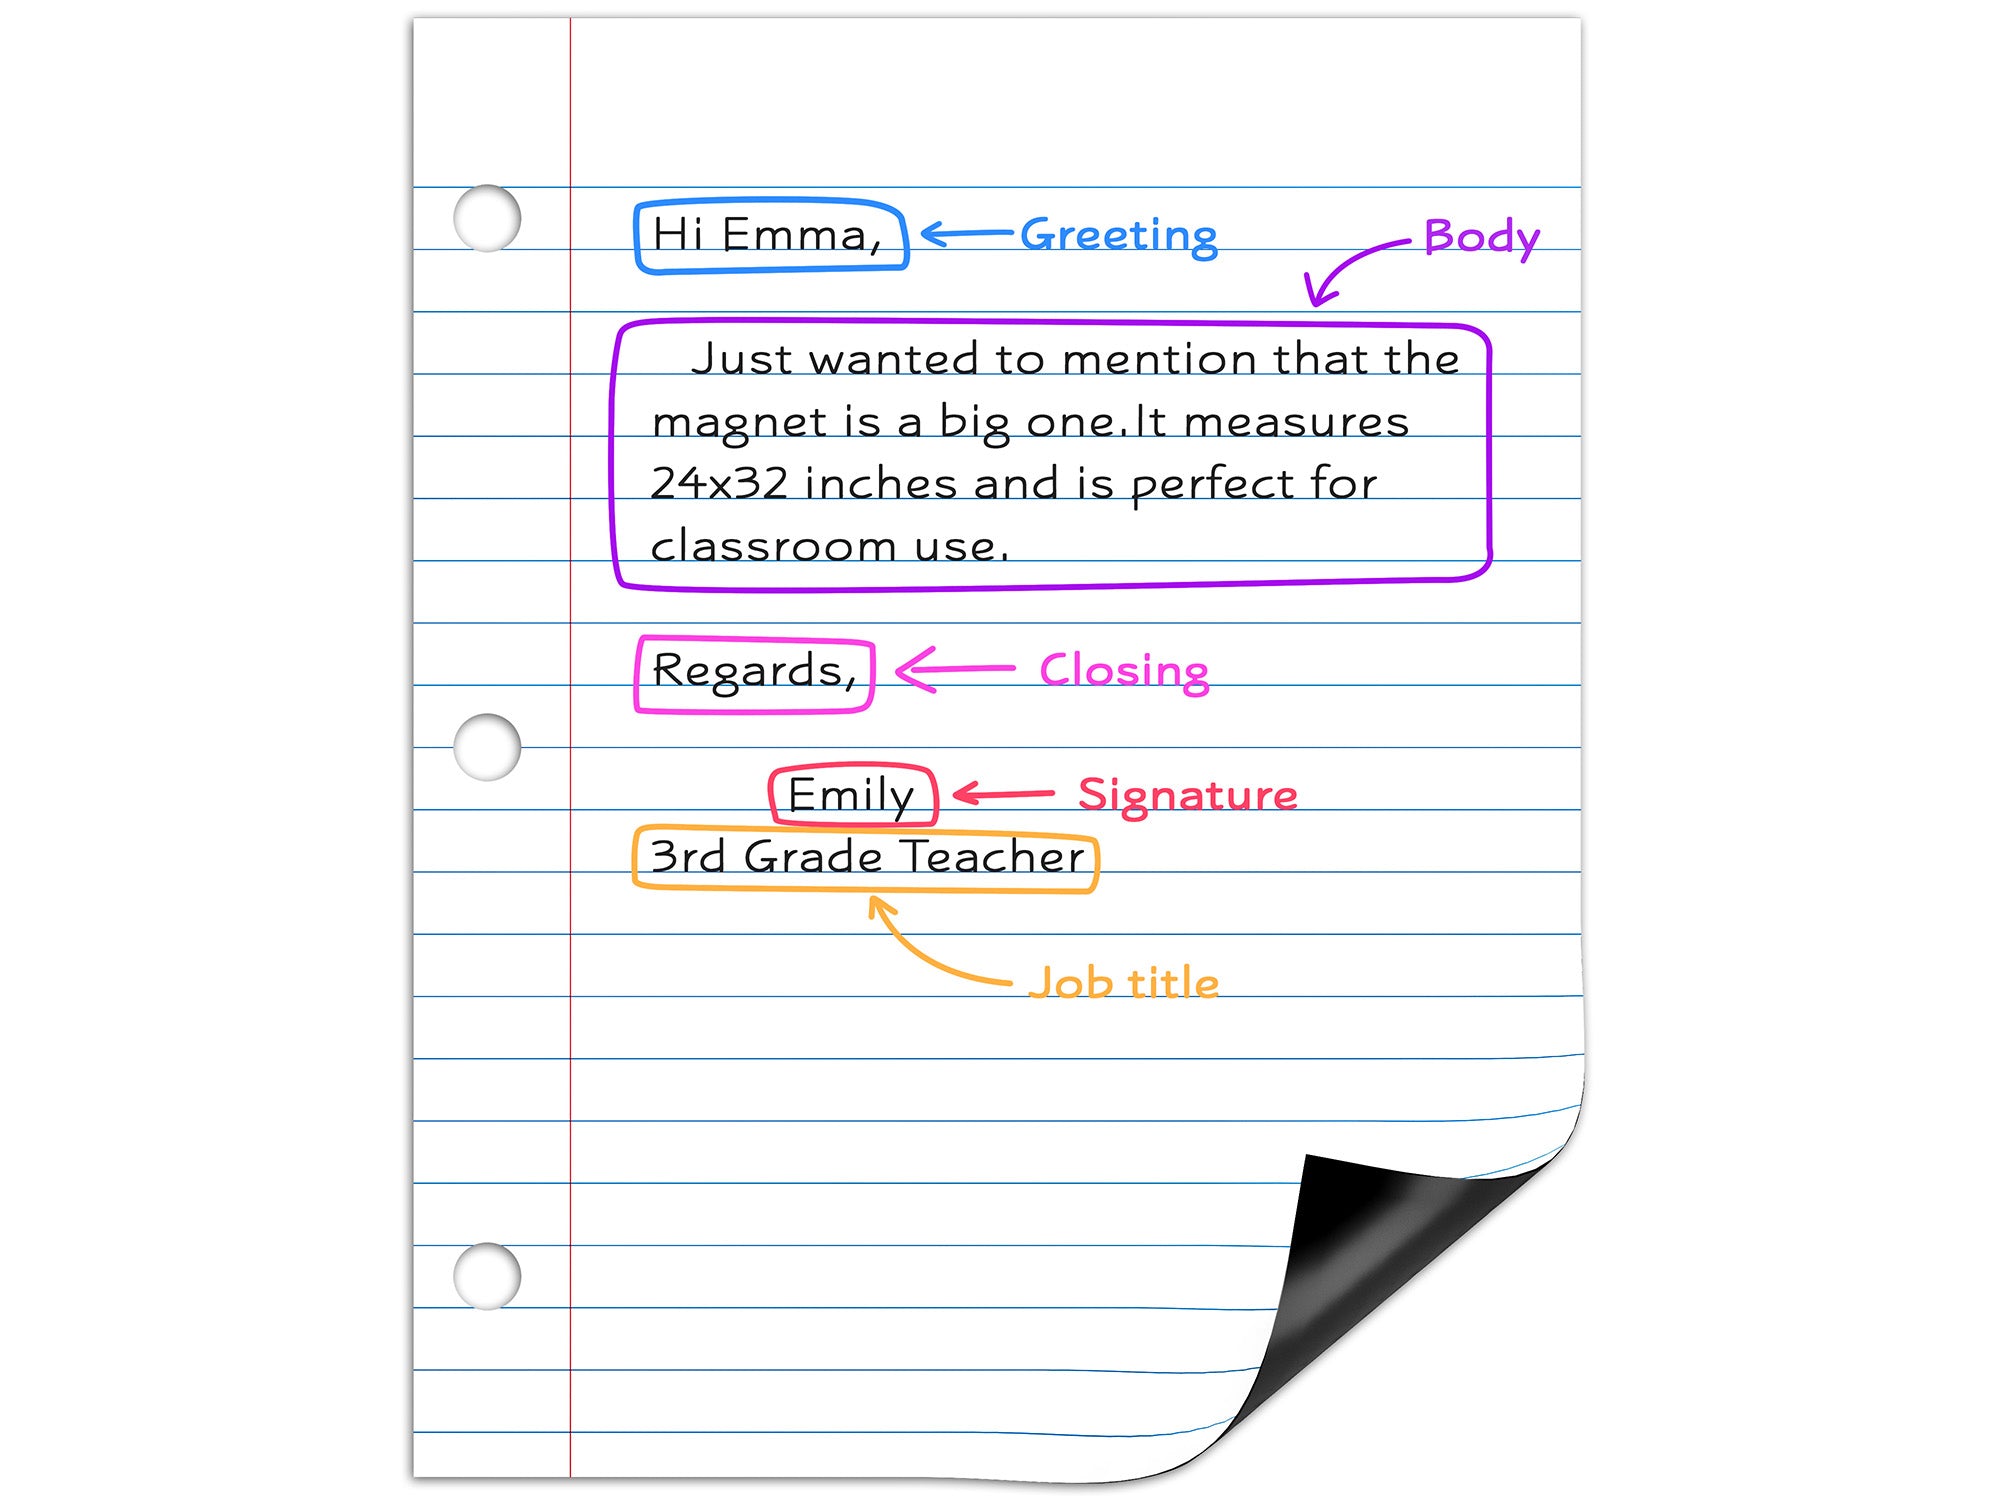 Hi Emma, Greeting
Body
Just wanted to mention that the
magnet is a big one.It measures
24x32 inches and is perfect for
classroom use.
Regards, Closing
Emily Signature
3rd Grade Teacher
Job title